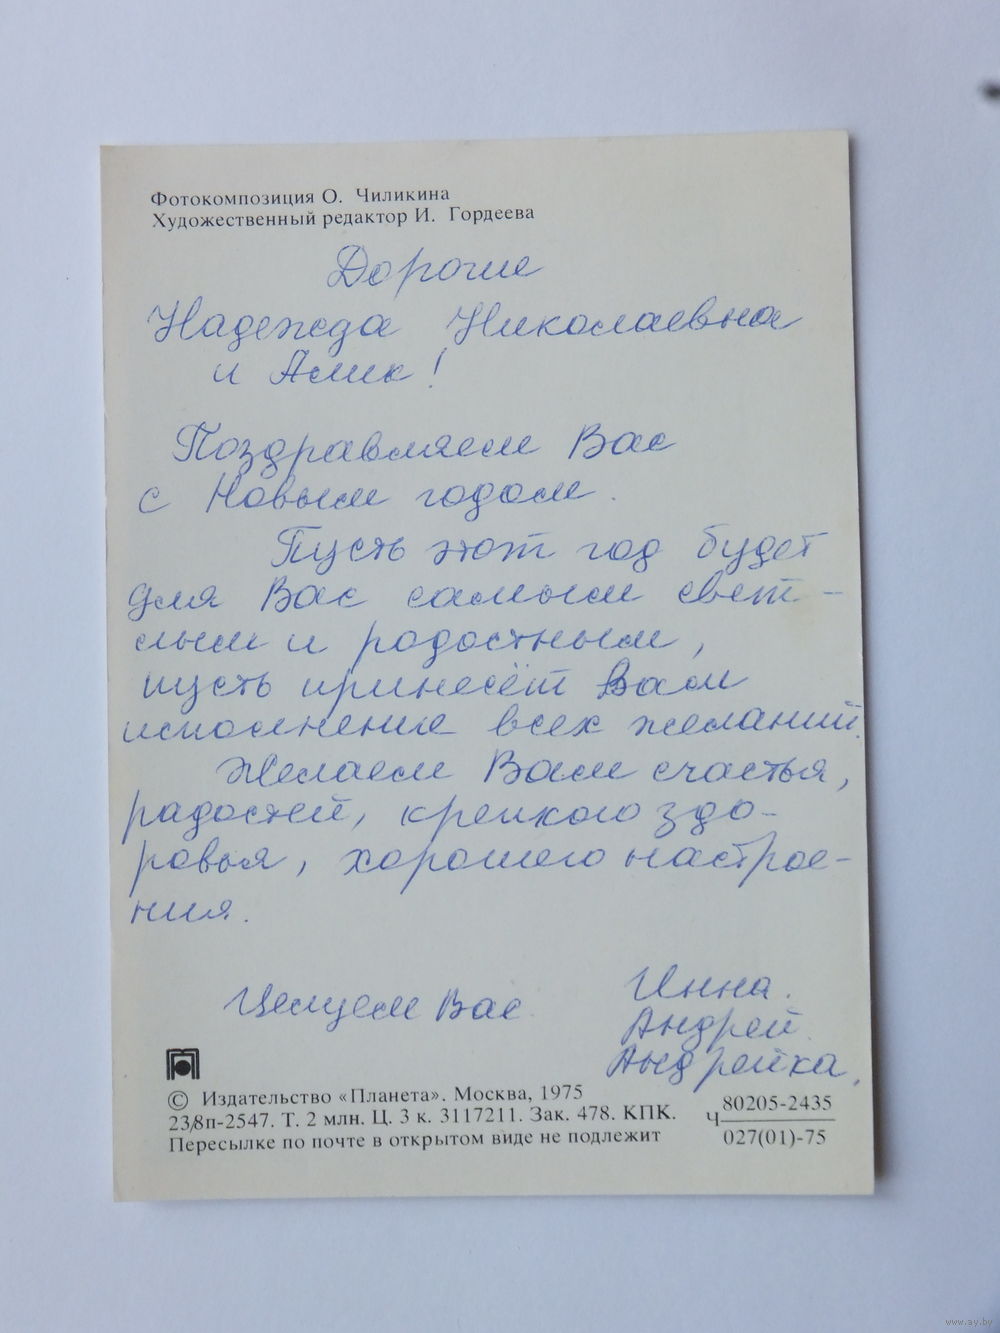 Фотокомпозиция О. Чиликина
Художественный редактор И. Гордеева
Дорогие
Надежда Николаевна
и Алик!
Поздравляем Вас
с Новым годом.
Пусть этот год будет
для Вас самым свет-
лым и радостным,
пусть принесёт Вам
исполнение всех желаний.
Желаем Вам счастья,
радостей, крепкого здо-
ровья, хорошего настрое-
ния.
Целуем Вас.
Инна.
Андрей.
Андрейка.
© Издательство «Планета». Москва, 1975
23/8п-2547. Т. 2 млн. Ц. 3 к. 3117211. Зак. 478. КПК.
Пересылке по почте в открытом виде не подлежит
Ч 80205-2435
027(01)-75
www.ay.by